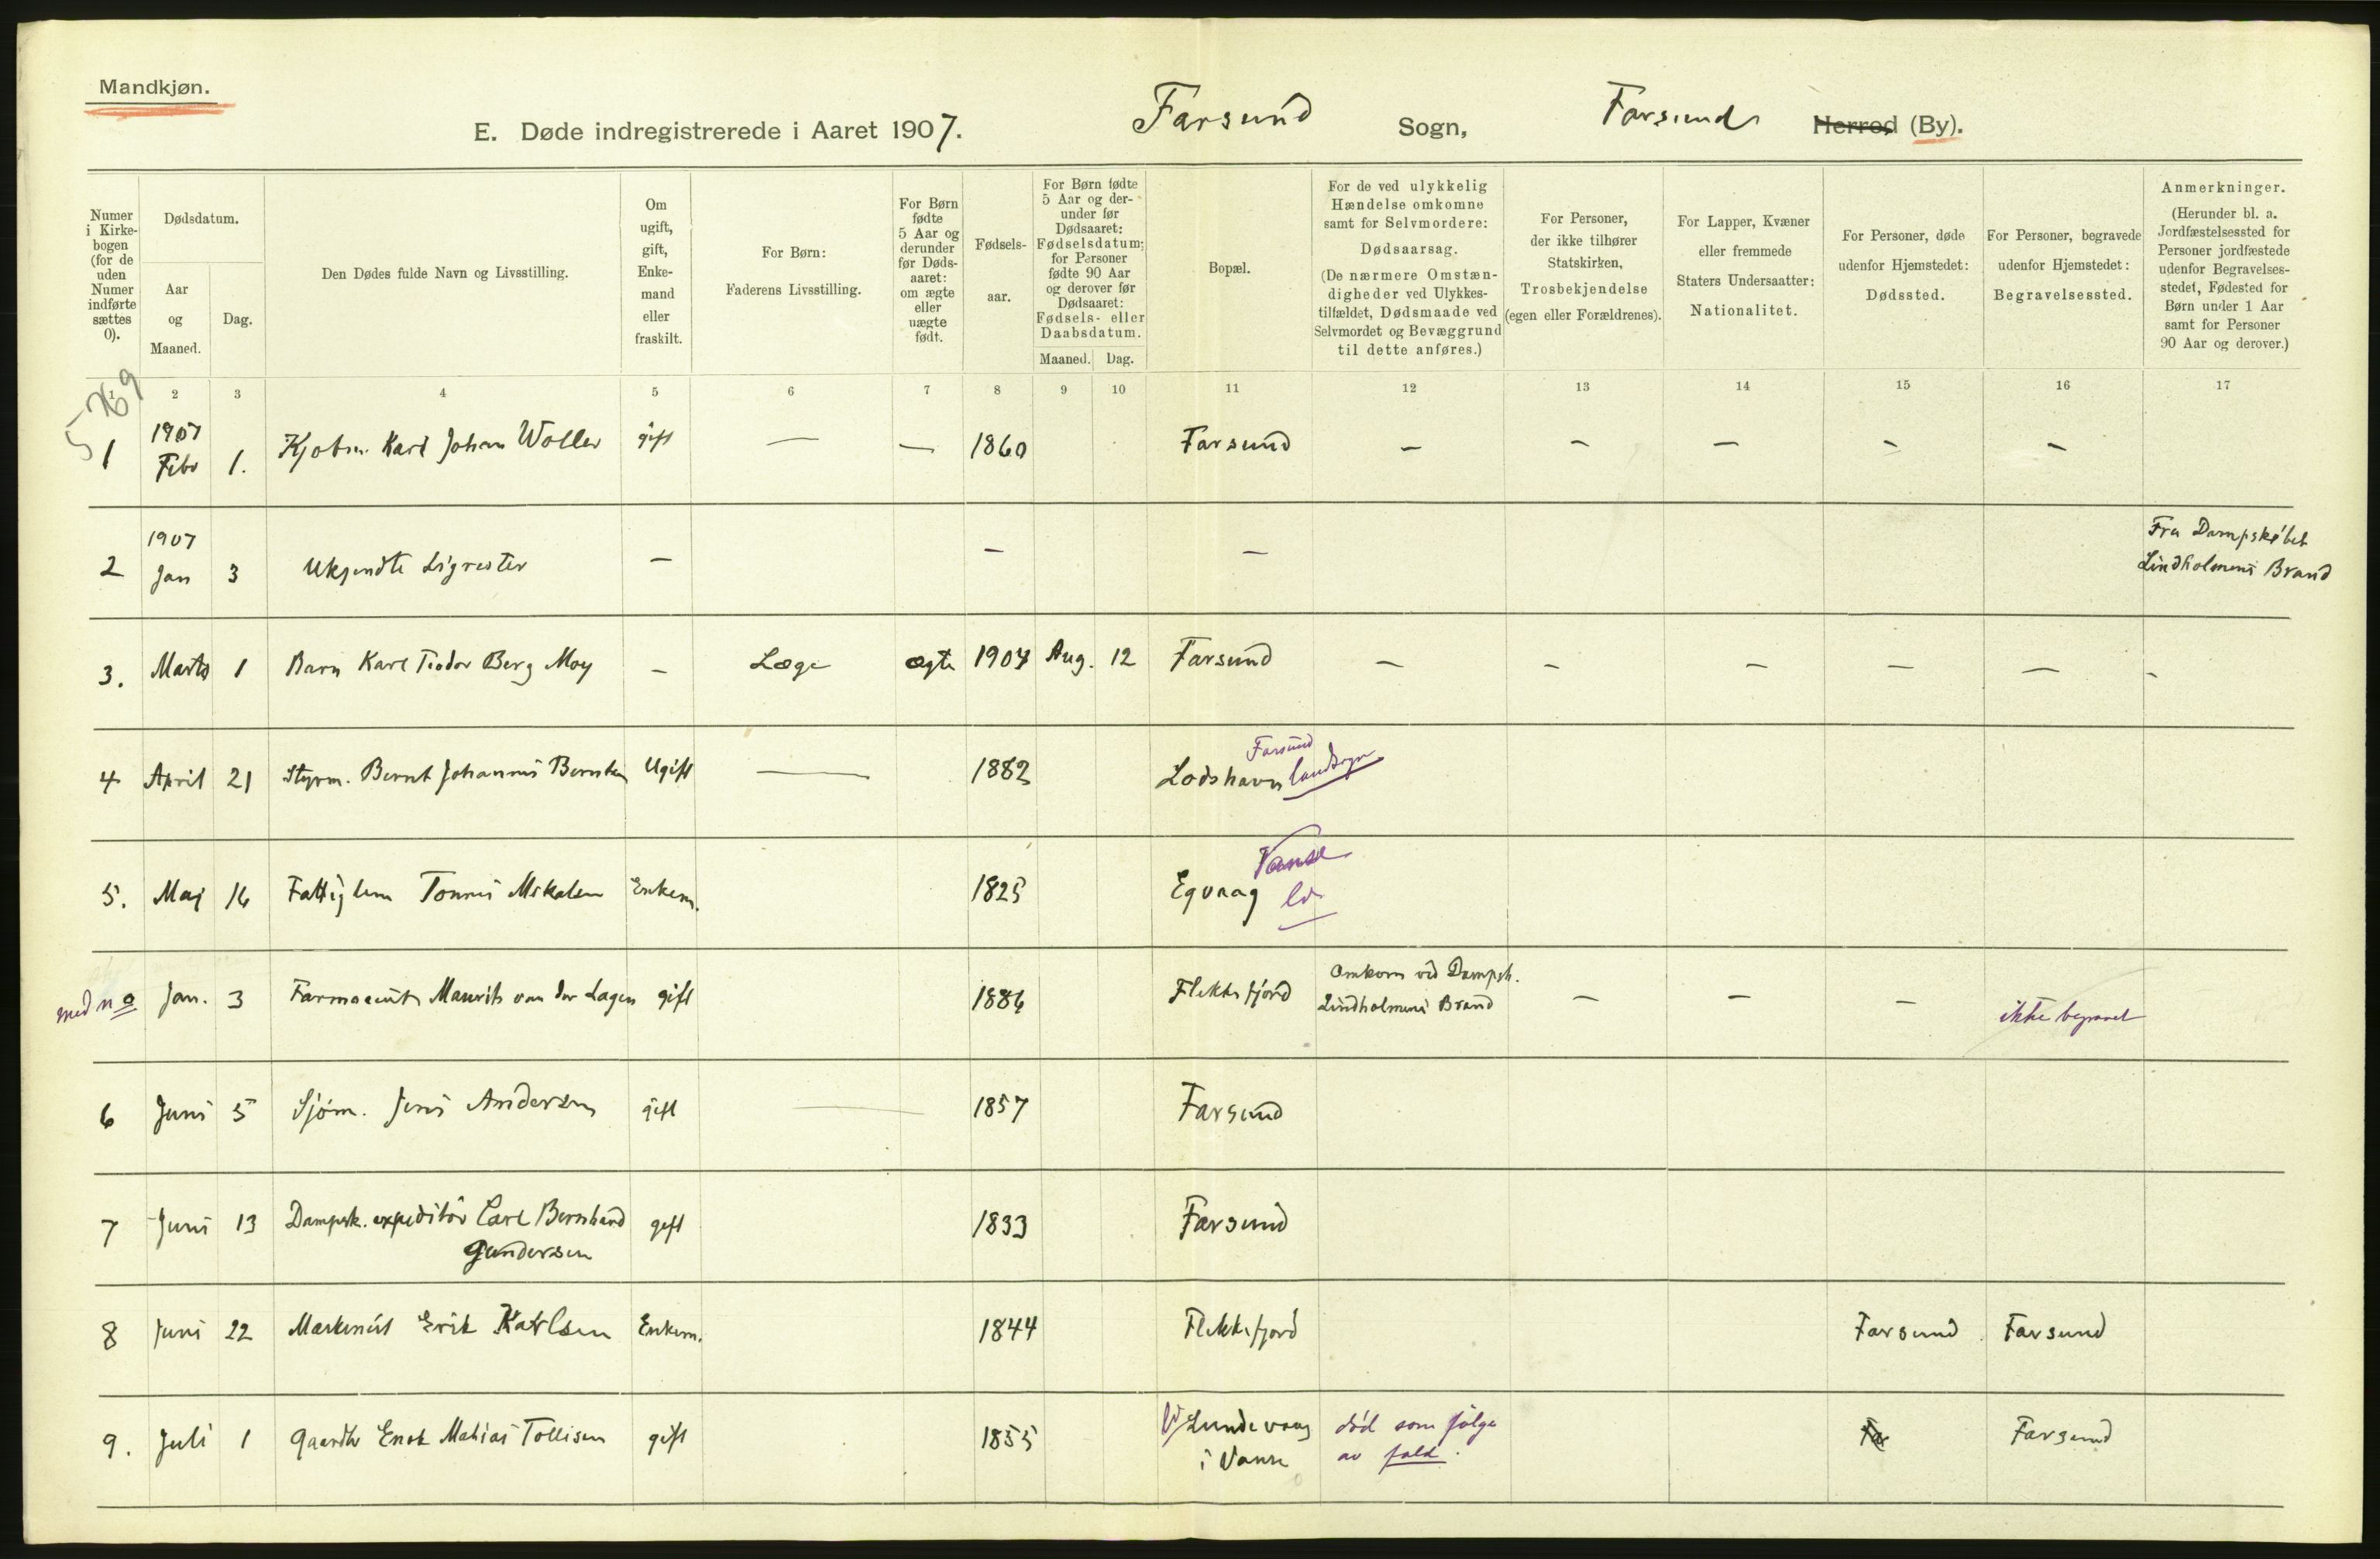 Mandkjøn.
E. Døde indregistrerede i Aaret 1907. Farsund Sogn, Farsund Herred (By).
Numer i Kirkebogen (for de uden Numer indførte sættes 0).
Dødsdatum.
Aar og Maaned.
Dag.
Den Dødes fulde Navn og Livsstilling.
Om ugift, gift, Enkemand eller fraskilt.
For Børn: Faderens Livsstilling.
For Børn fødte 5 Aar og derunder før Dødsaaret: om ægte eller uægte født.
Fødselsaar.
For Børn fødte 5 Aar og derunder før Dødsaaret: Fødselsdatum; for Personer fødte 90 Aar og derover før Dødsaaret: Fødsels- eller Daabsdatum.
Maaned. Dag.
Bopæl.
For de ved ulykkelig Hændelse omkomne samt for Selvmordere: Dødsaarsag. (De nærmere Omstændigheder ved Ulykkestilfældet, Dødsmaade ved Selvmordet og Bevæggrund til dette anføres.)
For Personer, der ikke tilhører Statskirken, Trosbekjendelse (egen eller Forældrenes).
For Lapper, Kvæner eller fremmede Staters Undersaatter: Nationalitet.
For Personer, døde udenfor Hjemstedet: Dødssted.
For Personer, begravede udenfor Hjemstedet: Begravelsessted.
Anmerkninger. (Herunder bl. a. Jordfæstelsessted for Personer jordfæstede udenfor Begravelsesstedet, Fødested for Børn under 1 Aar samt for Personer 90 Aar og derover.)
1 2 3 4 5 6 7 8 9 10 11 12 13 14 15 16 17
1 1907 Febr 1. Kjøbm. Karl Johan Woller gift — — 1860 Farsund — — — — —
2 1907 Jan 3 Ukjendte Ligrester — — — Fra Dampskibet
Lindholmens Brand
3. Marts 1 Barn Karl Teodor Berg Moy — Læge ægte 1907 Aug. 12 Farsund — — — — — -
4 April 21 Styrm. Bernt Johannes Berntsen Ugift — 1882 Lodshavn Farsund landsogn
5. Maj 16 Fattiglem Tønnes Mikalsen Enkem. 1825 Eqvaag Vanse
med no Jan. 3 Farmaceut Maurits van der Lagen gift 1886 Flekkefjord Omkom ved Dampsk.
Lindholmens Brand — — — ikke begravet
6 Juni 5 Sjøm. Jens Andersen gift — 1857 Farsund
7 Juni 13 Dampsk. expeditør Carl Bernhard gift 1833 Farsund
Gundersen
8 Juni 22 Maskinist Erik Karlsen Enkem. 1844 Flekkefjord Farsund Farsund
9. Juli 1 Gaardbr Enok Matias Tollisen gift 1855 Lundevaag død som følge Far Farsund
i Vanse av fald.